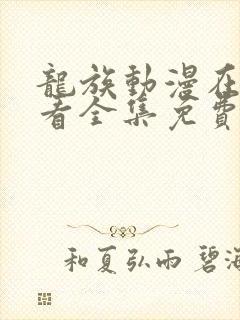 龍族動漫在
看全集免費
和夏弘雨 碧海